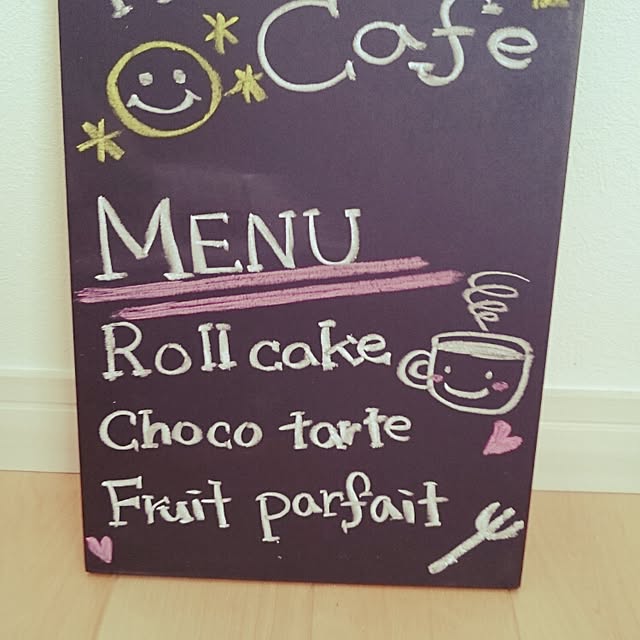 Cafe
MENU
Roll cake
Choco tarte
Fruit parfait